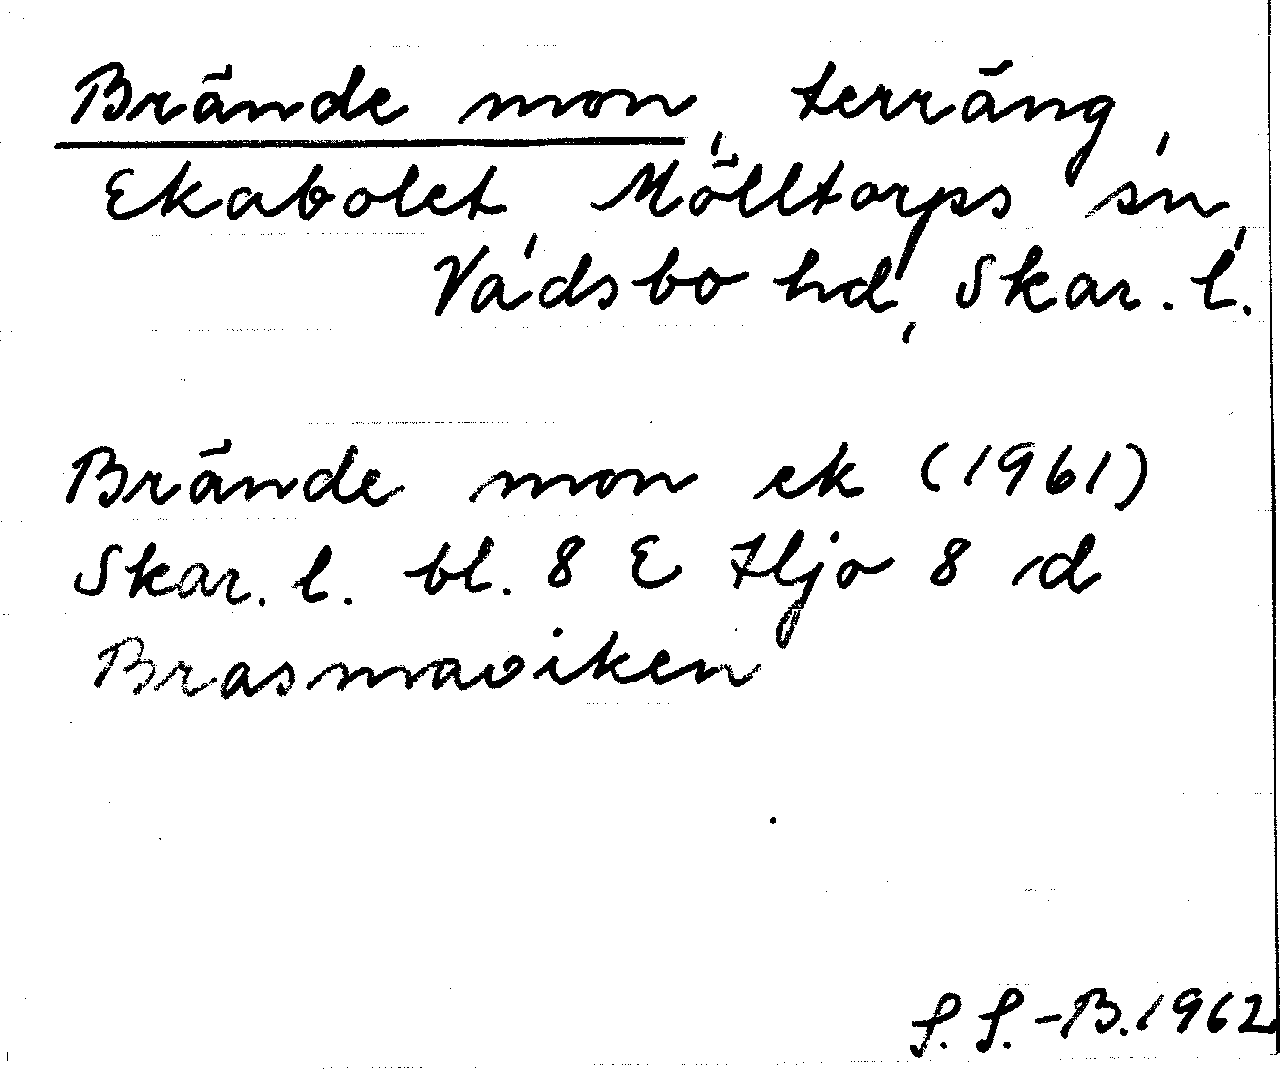 Brände mon, terräng,
Ekabolet, Mölltorps sn,
Vadsbo hd, Skar. l.
Brände mon ek (1961)
Skar. l. bl. 8 E Hjo 8 d
Brasmaviken
S. S.-B. 1962